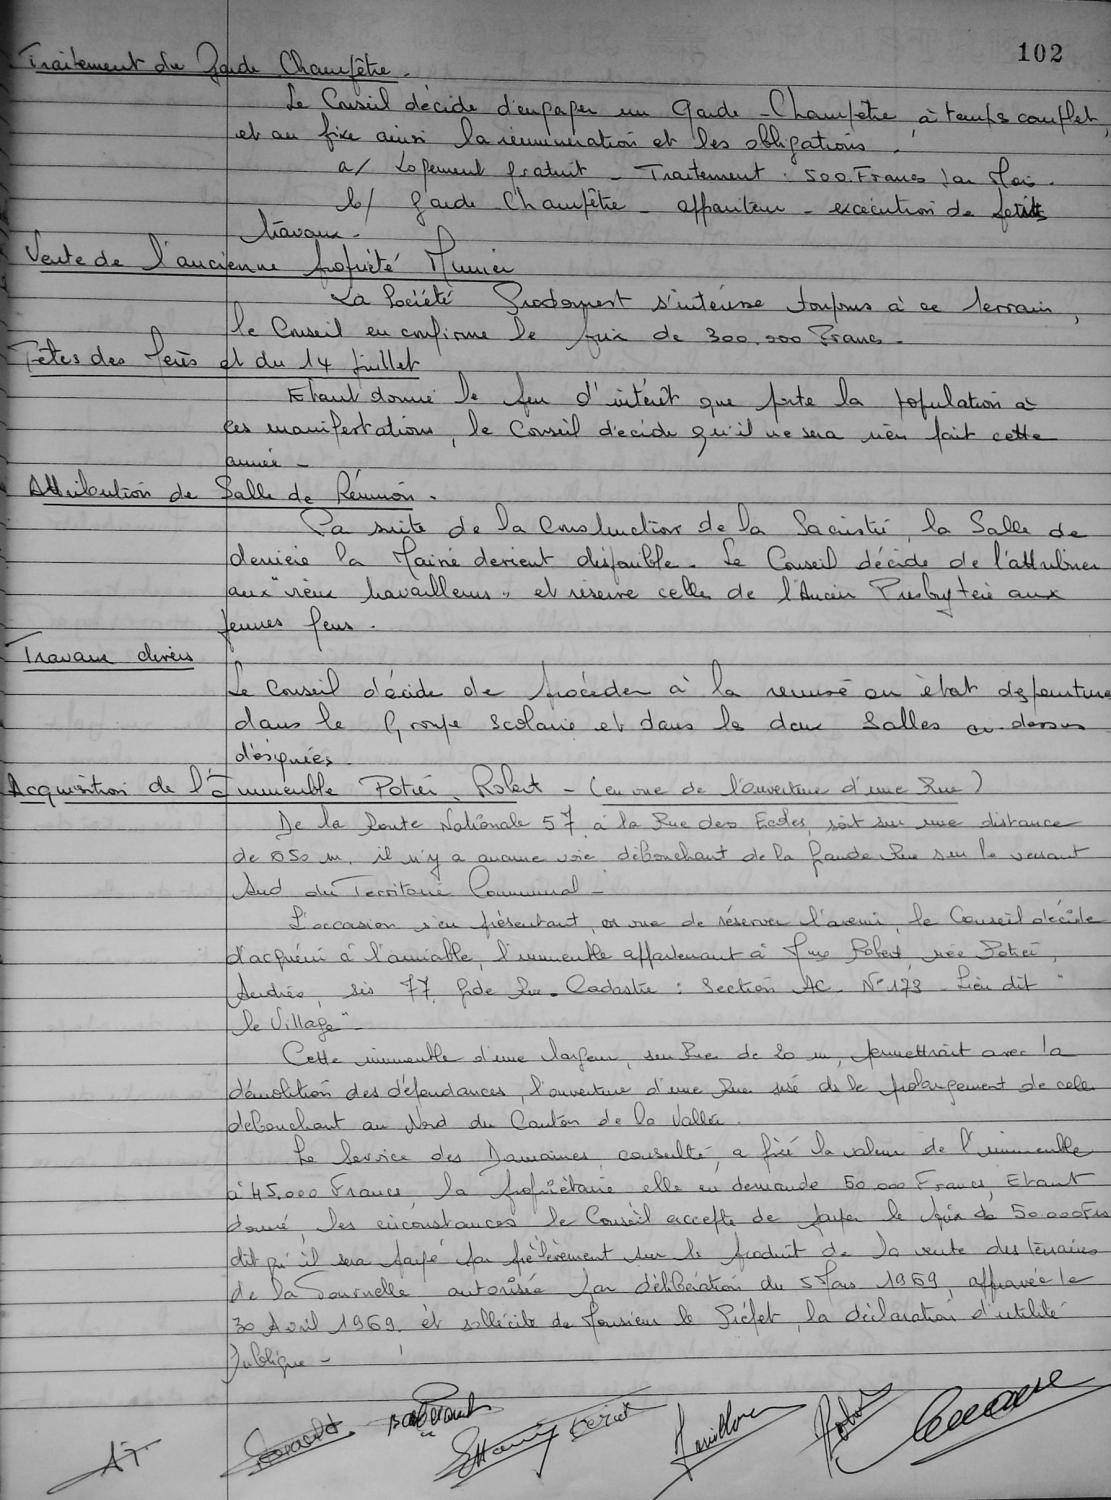 102
Traitement du Garde Champêtre -
Le Conseil décide d'engager un Garde-Champêtre, à temps complet,
et en fixe ainsi la rémunération et les obligations.
a/ Logement gratuit - Traitement : 500 Francs par Mois.
b/ Garde Champêtre - appariteur - exécution de petits
travaux -
Vente de l'ancienne propriété Munier
La Société s'intéresse toujours à ce terrain,
le Conseil en confirme le prix de 300.000 Francs -
Fêtes des Pères et du 14 Juillet
Etant donné le peu d'intérêt que porte la population à
ces manifestations, le Conseil décide qu'il ne sera rien fait cette
année -
Attribution de Salle de Réunion -
Par suite de la Construction de la Sacristie, la Salle de
derrière la Mairie devient disponible. Le Conseil décide de l'attribuer
aux "vieux travailleurs" et réserve celle de l'Ancien Presbytère aux
jeunes gens.
Travaux divers
Le Conseil décide de procéder à la remise en état de peinture
dans le Groupe Scolaire et dans les deux Salles ci-dessus
désignées.
Acquisition de l'Immeuble Potier Robert - (en vue de l'ouverture d'une Rue)
De la Route Nationale 57 à la Rue des Ecoles, soit sur une distance
de 850 m, il n'y a aucune voie débouchant de la Grande Rue sur le versant
Sud du Territoire Communal -
L'occasion s'en présentant, en vue de réserver l'avenir, le Conseil décide
d'acquérir à l'amiable, l'immeuble appartenant à Mme Robert, née Potier,
Andrée, sis 77, Gde Rue. Cadastre : Section AC N° 173 Lieu dit "
le Village" -
Cette immeuble d'une largeur, sur Rue de 20 m, permettrait avec la
démolition des dépendances, l'ouverture d'une Rue sise ds le prolongement de celle
débouchant au Nord du Canton de la Vallée.
Le Service des Domaines, consulté, a fixé la valeur de l'immeuble
à 45.000 Francs, la propriétaire elle en demande 50.000 Francs. Etant
donné les circonstances le Conseil accepte de payer le prix de 50.000 Frs
dit qu'il sera payé par prélèvement sur le produit de la vente des terrains
de la Tournelle autorisée par délibération du 5 Mars 1969, approuvée le
30 Avril 1969, et sollicite de Monsieur le Préfet, la déclaration d'utilité
Publique -